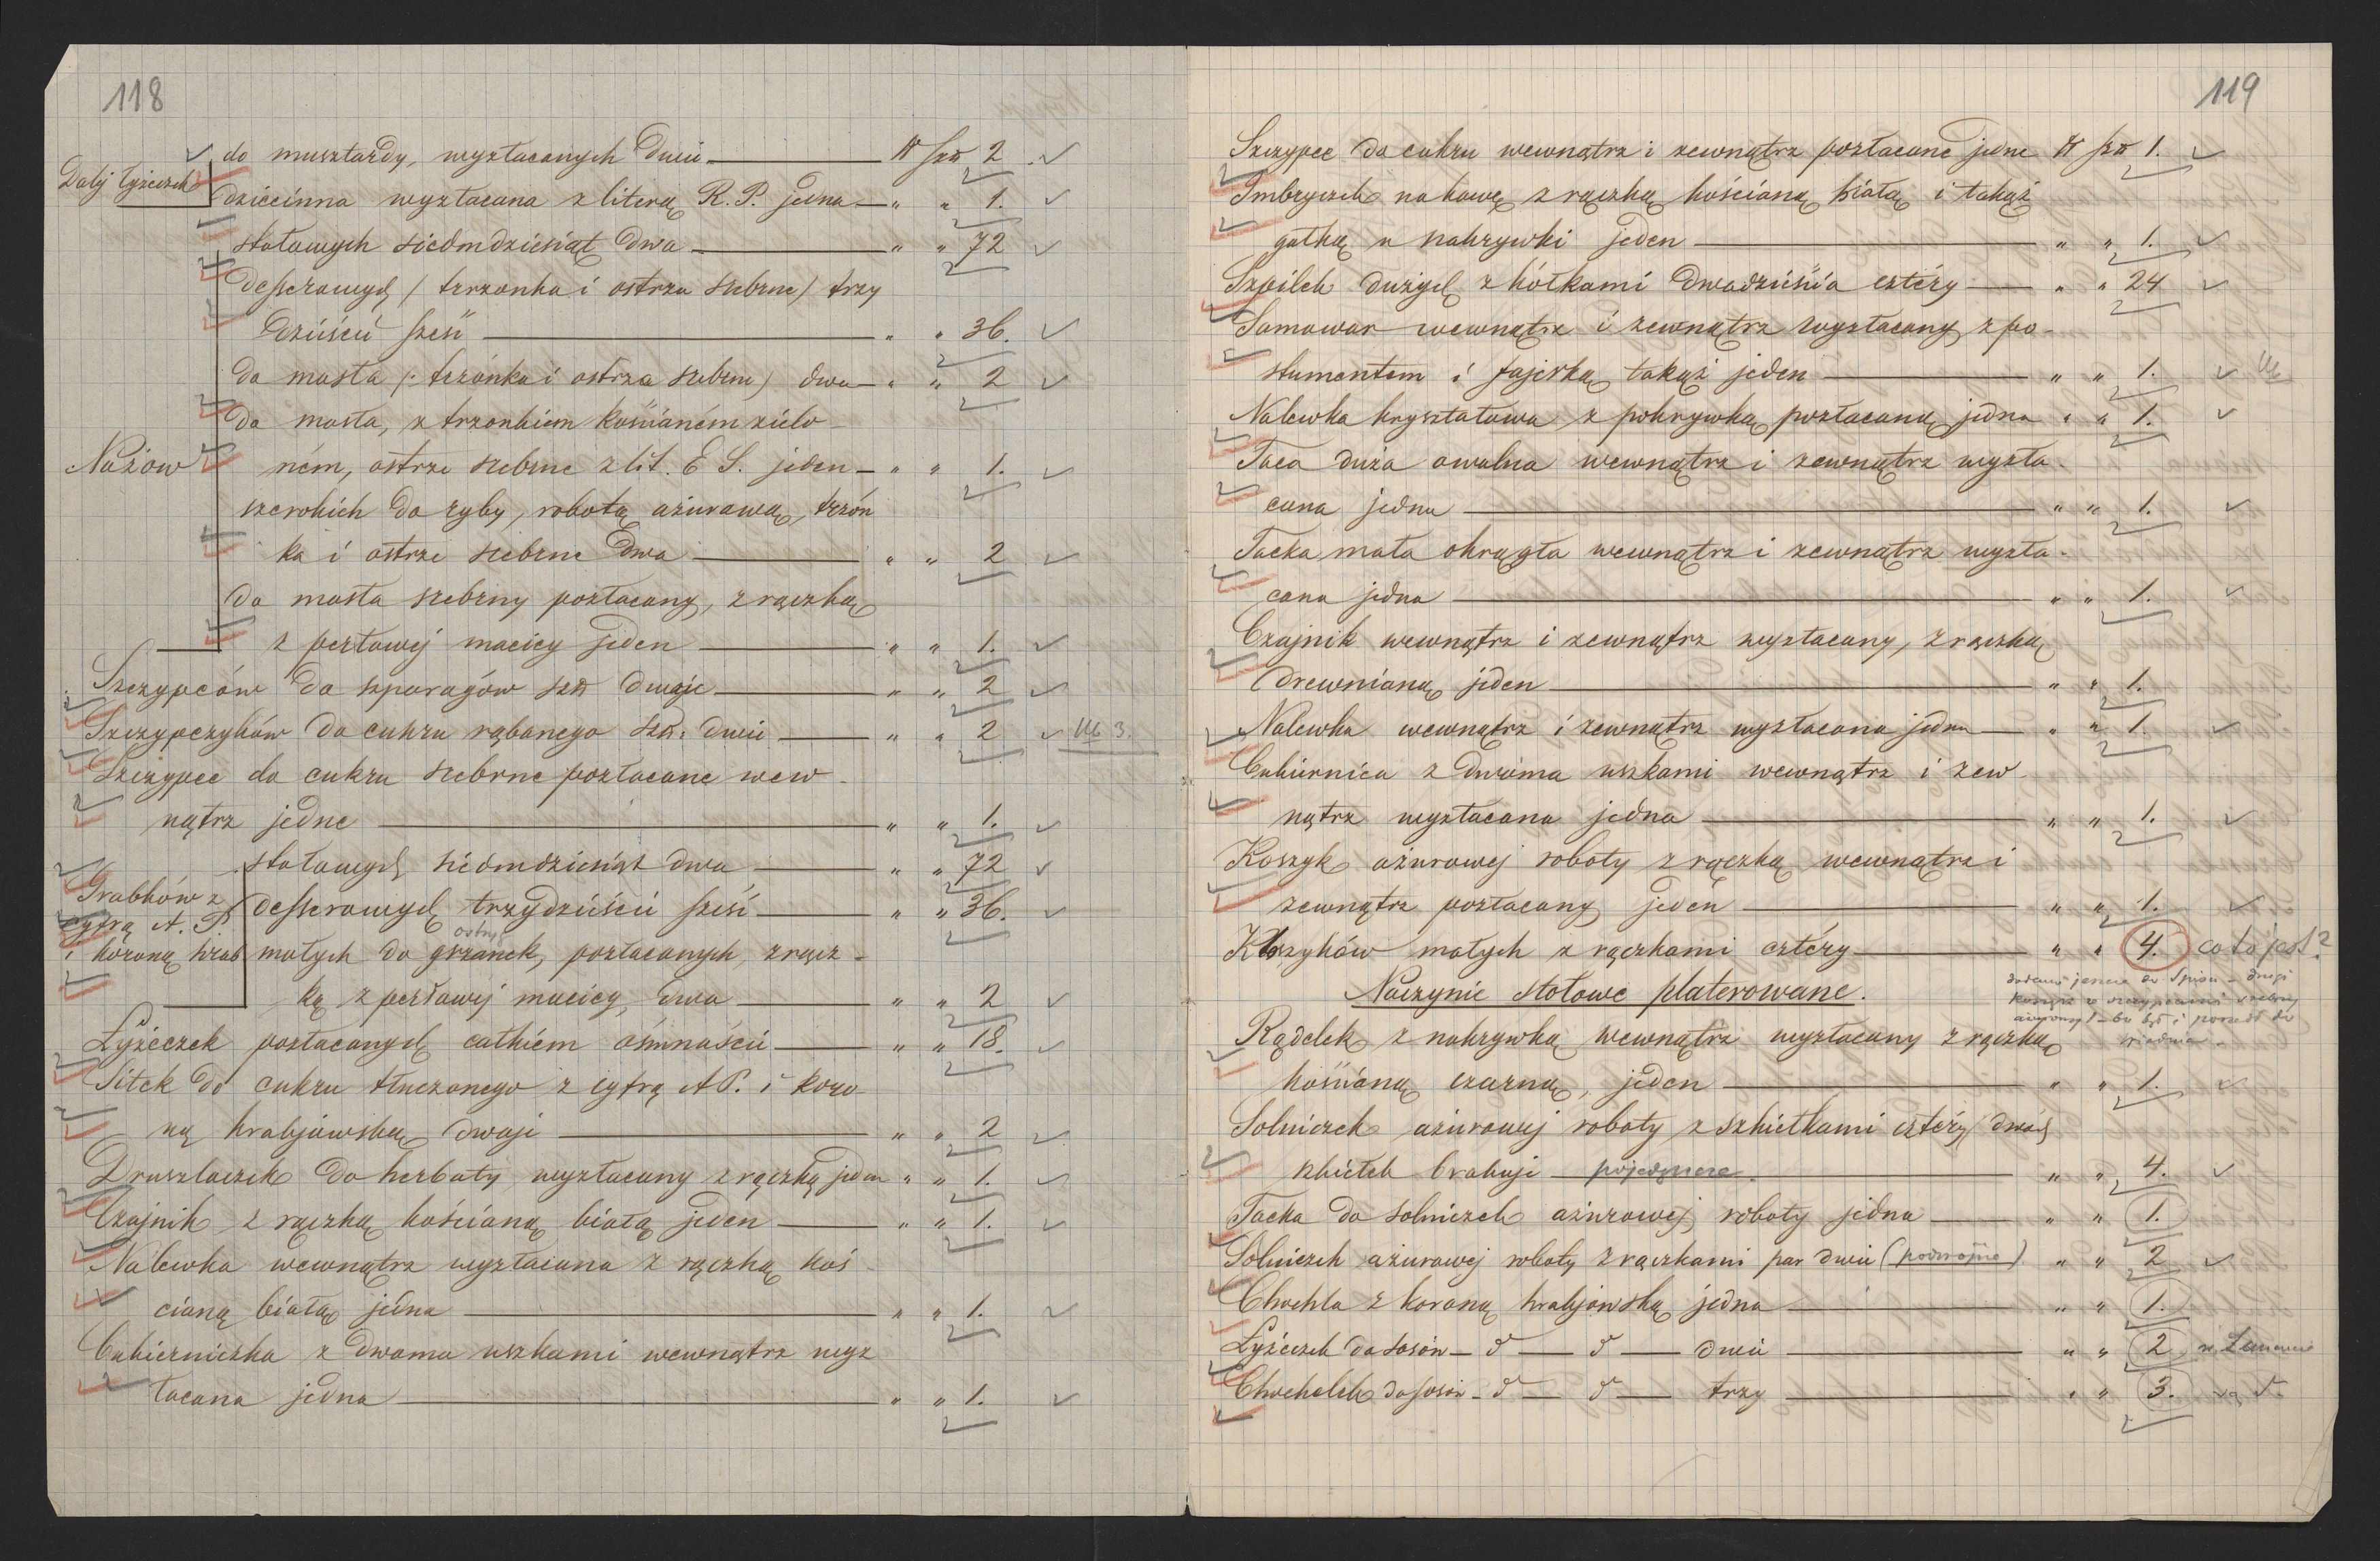 118
do musztardy, wyzłacanych dwie — N szt 2
Dalej łyżeczek
dziecinna wyzłacana z literą R. P. jedna — " " 1.
stołowych siedmdziesiąt dwa — " " 72
desserowych / trzonka i ostrza srebrne / trzy
dzieści sześć — " " 36.
do masła /: trzonka i ostrza srebrne) dwa — " " 2
do masła, z trzonkiem kościaném zielo-
Nożow
ném, ostrze srebrne z lit. E S. jeden — " " 1.
szerokich do ryby, robotą ażurową, trzón
ka i ostrze srebrne dwa — " " 2
do masła srebrny pozłacany, z rączką
z perłowej macicy jeden — " " 1.
Szczypców do szparagów szt dwoje — " " 2
Szczypczyków do cukru rąbanego szt: dwie — " " 2
3.
Szczypce do cukru srebrne pozłacane wew-
nątrz jedne — " " 1.
stołowych siedmdziesiąt dwa — " " 72
Grabków z
cyfrą A. P.
i koroną hrab
desserowych trzydzieści sześć — " " 36.
ostryg
małych do grzanek, pozłacanych, z rącz-
ką z perłowej macicy, dwa — " " 2
Łyżeczek pozłacanych całkiem ośmnaście — " " 18.
Sitek do cukru tłuczonego z cyfrą A P. i koro-
ną hrabjowską dwoje — " " 2
Druszlaczek do herbaty wyzłacany z rączką jeden " " 1.
Czajnik z rączką kościaną białą jeden — " " 1.
Nalewka wewnątrz wyzłacana z rączką koś-
cianą białą jedna — " " 1.
Cukierniczka z dwoma uszkami wewnątrz wyz
łacana jedna — " " 1.
119
Szczypce do cukru wewnątrz i zewnątrz pozłacane jedne N szt 1.
Imbryczek na kawę z rączką kościaną białą i takąż
gałką u nakrywki jeden — " " 1.
Szpilek dużych z kółkami dwadzieścia cztéry — " " 24
Samowar wewnątrz i zewnątrz wyzłacany z po-
stumentem i fajerką takąż jeden — " " 1.
Nalewka kryształowa z pokrywką pozłacaną jedna " " 1.
Taca duża owalna wewnątrz i zewnątrz wyzła-
cana jedna — " " 1.
Tacka mała okrągła wewnątrz i zewnątrz wyzła-
cana jedna — " " 1.
Czajnik wewnątrz i zewnątrz wyzłacany, z rączką
drewnianą jeden — " " 1.
Nalewka wewnątrz i zewnątrz wyzłacana jedna — " " 1.
Cukiernica z dwoma uszkami wewnątrz i zew-
nątrz wyzłacana jedna — " " 1.
Koszyk ażurowej roboty z rączką wewnątrz i
zewnątrz pozłacany jeden — " " 1.
Koszyków małych z rączkami cztéry — " " 4. co to jest?
Naczynie stołowe platerowane.
Rądelek z nakrywką wewnątrz wyzłacany z rączką
kościaną czarną, jeden — " " 1.
Solniczek ażurowej roboty z szkiełkami cztéry / dwóch
szkiełek brakuje — pojedyncze — " " 4.
Tacka do solniczek ażurowej roboty jedna — " " 1.
Solniczek ażurowej roboty z rączkami par dwie (podwójne) " " 2
Chochla z koroną hrabjowską jedna — " " 1.
Łyżeczek do sosów — d — d — dwie — " " 2
Chochelek do sosów — d — d — trzy — " " 3.